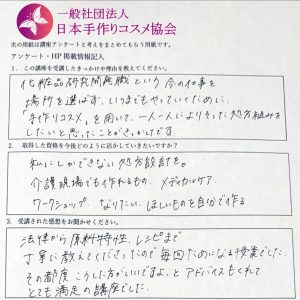 一般社団法人
日本手作りコスメ協会
次の用紙は講座アンケートと考えをまとめてもらう用紙です。
アンケート・HP 掲載情報記入
1. この講座を受講したきっかけや理由を教えてください。
化粧品研究開発職という今の仕事を
場所を選ばず、いつまでもやっていくために、
「手作りコスメ」を用いて、一人一人によりそった処方組みを
したいと思ったことがきっかけです。
2. 取得した資格を今後どのように活かしていきたいですか?
私にしかできない処方設計を。
介護現場でも作れるもの、メディカルケア
ワークショップ なりたい、ほしいものを自分で作る。
3. 受講された感想をお聞かせください。
法律から原料特性、レシピまで
丁寧に教えてくださったので毎回ためになる授業でした。
その都度こうした方がいいですよ、とアドバイスもくれて
とても満足の講座でした。